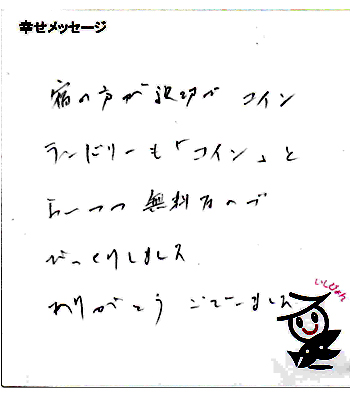 幸せメッセージ
宿の方が親切で コイン
ランドリーも「コイン」と
いっつつ 無料なので
びっくりしました
ありがとう ございました